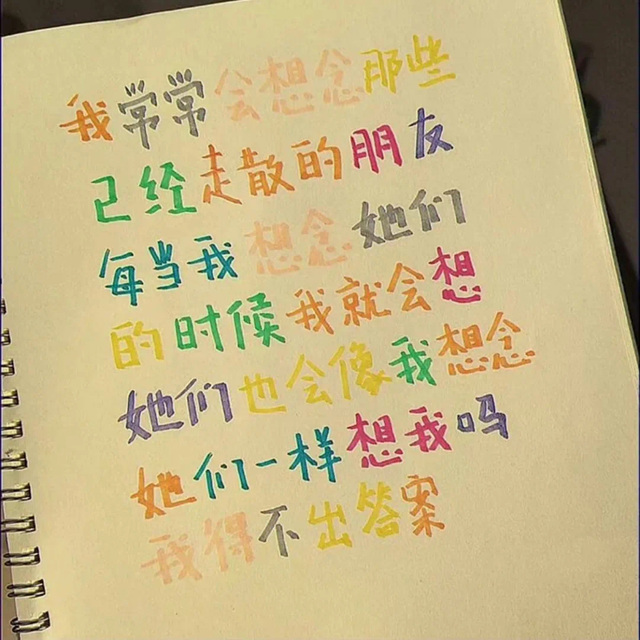 我常常会想念那些
已经走散的朋友
每当我想念她们
的时候我就会想
她们也会像我想念
她们一样想我吗
我得不出答案